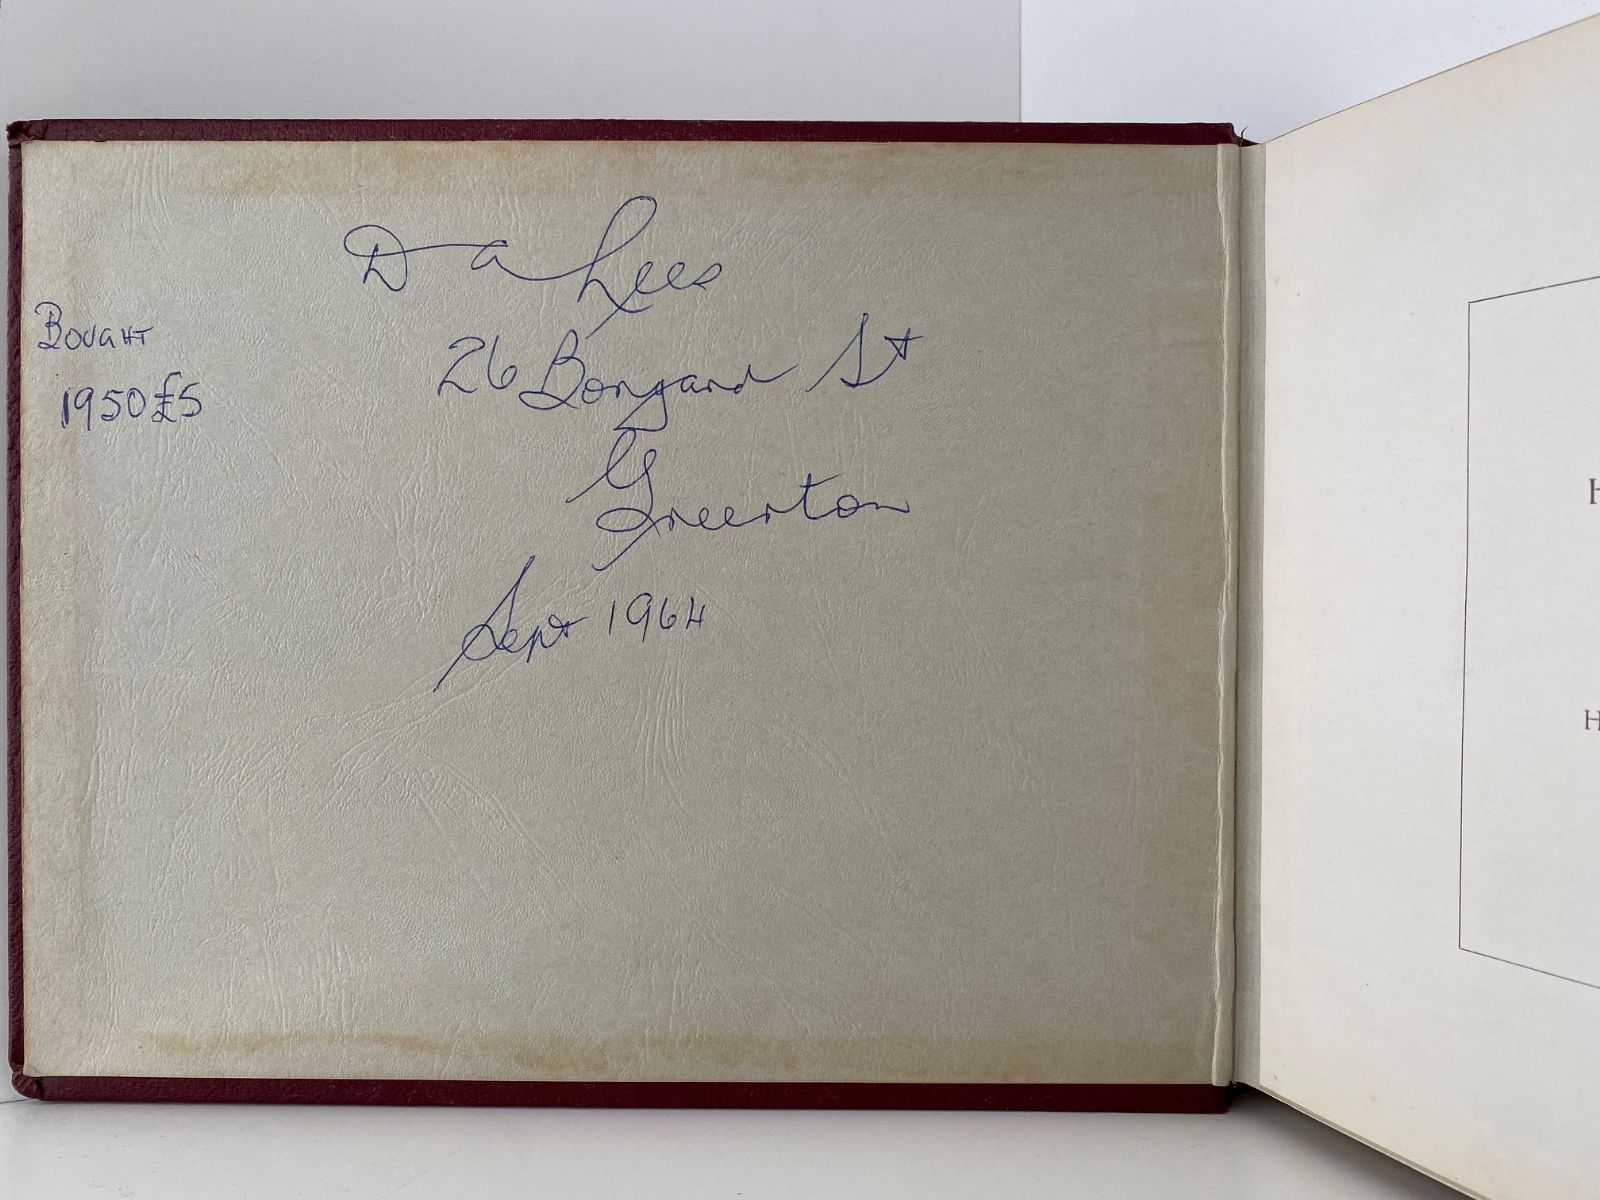 D A Lees
26 Bongard St
Greerton
Sept 1964
Bought
1950 £5
H
H